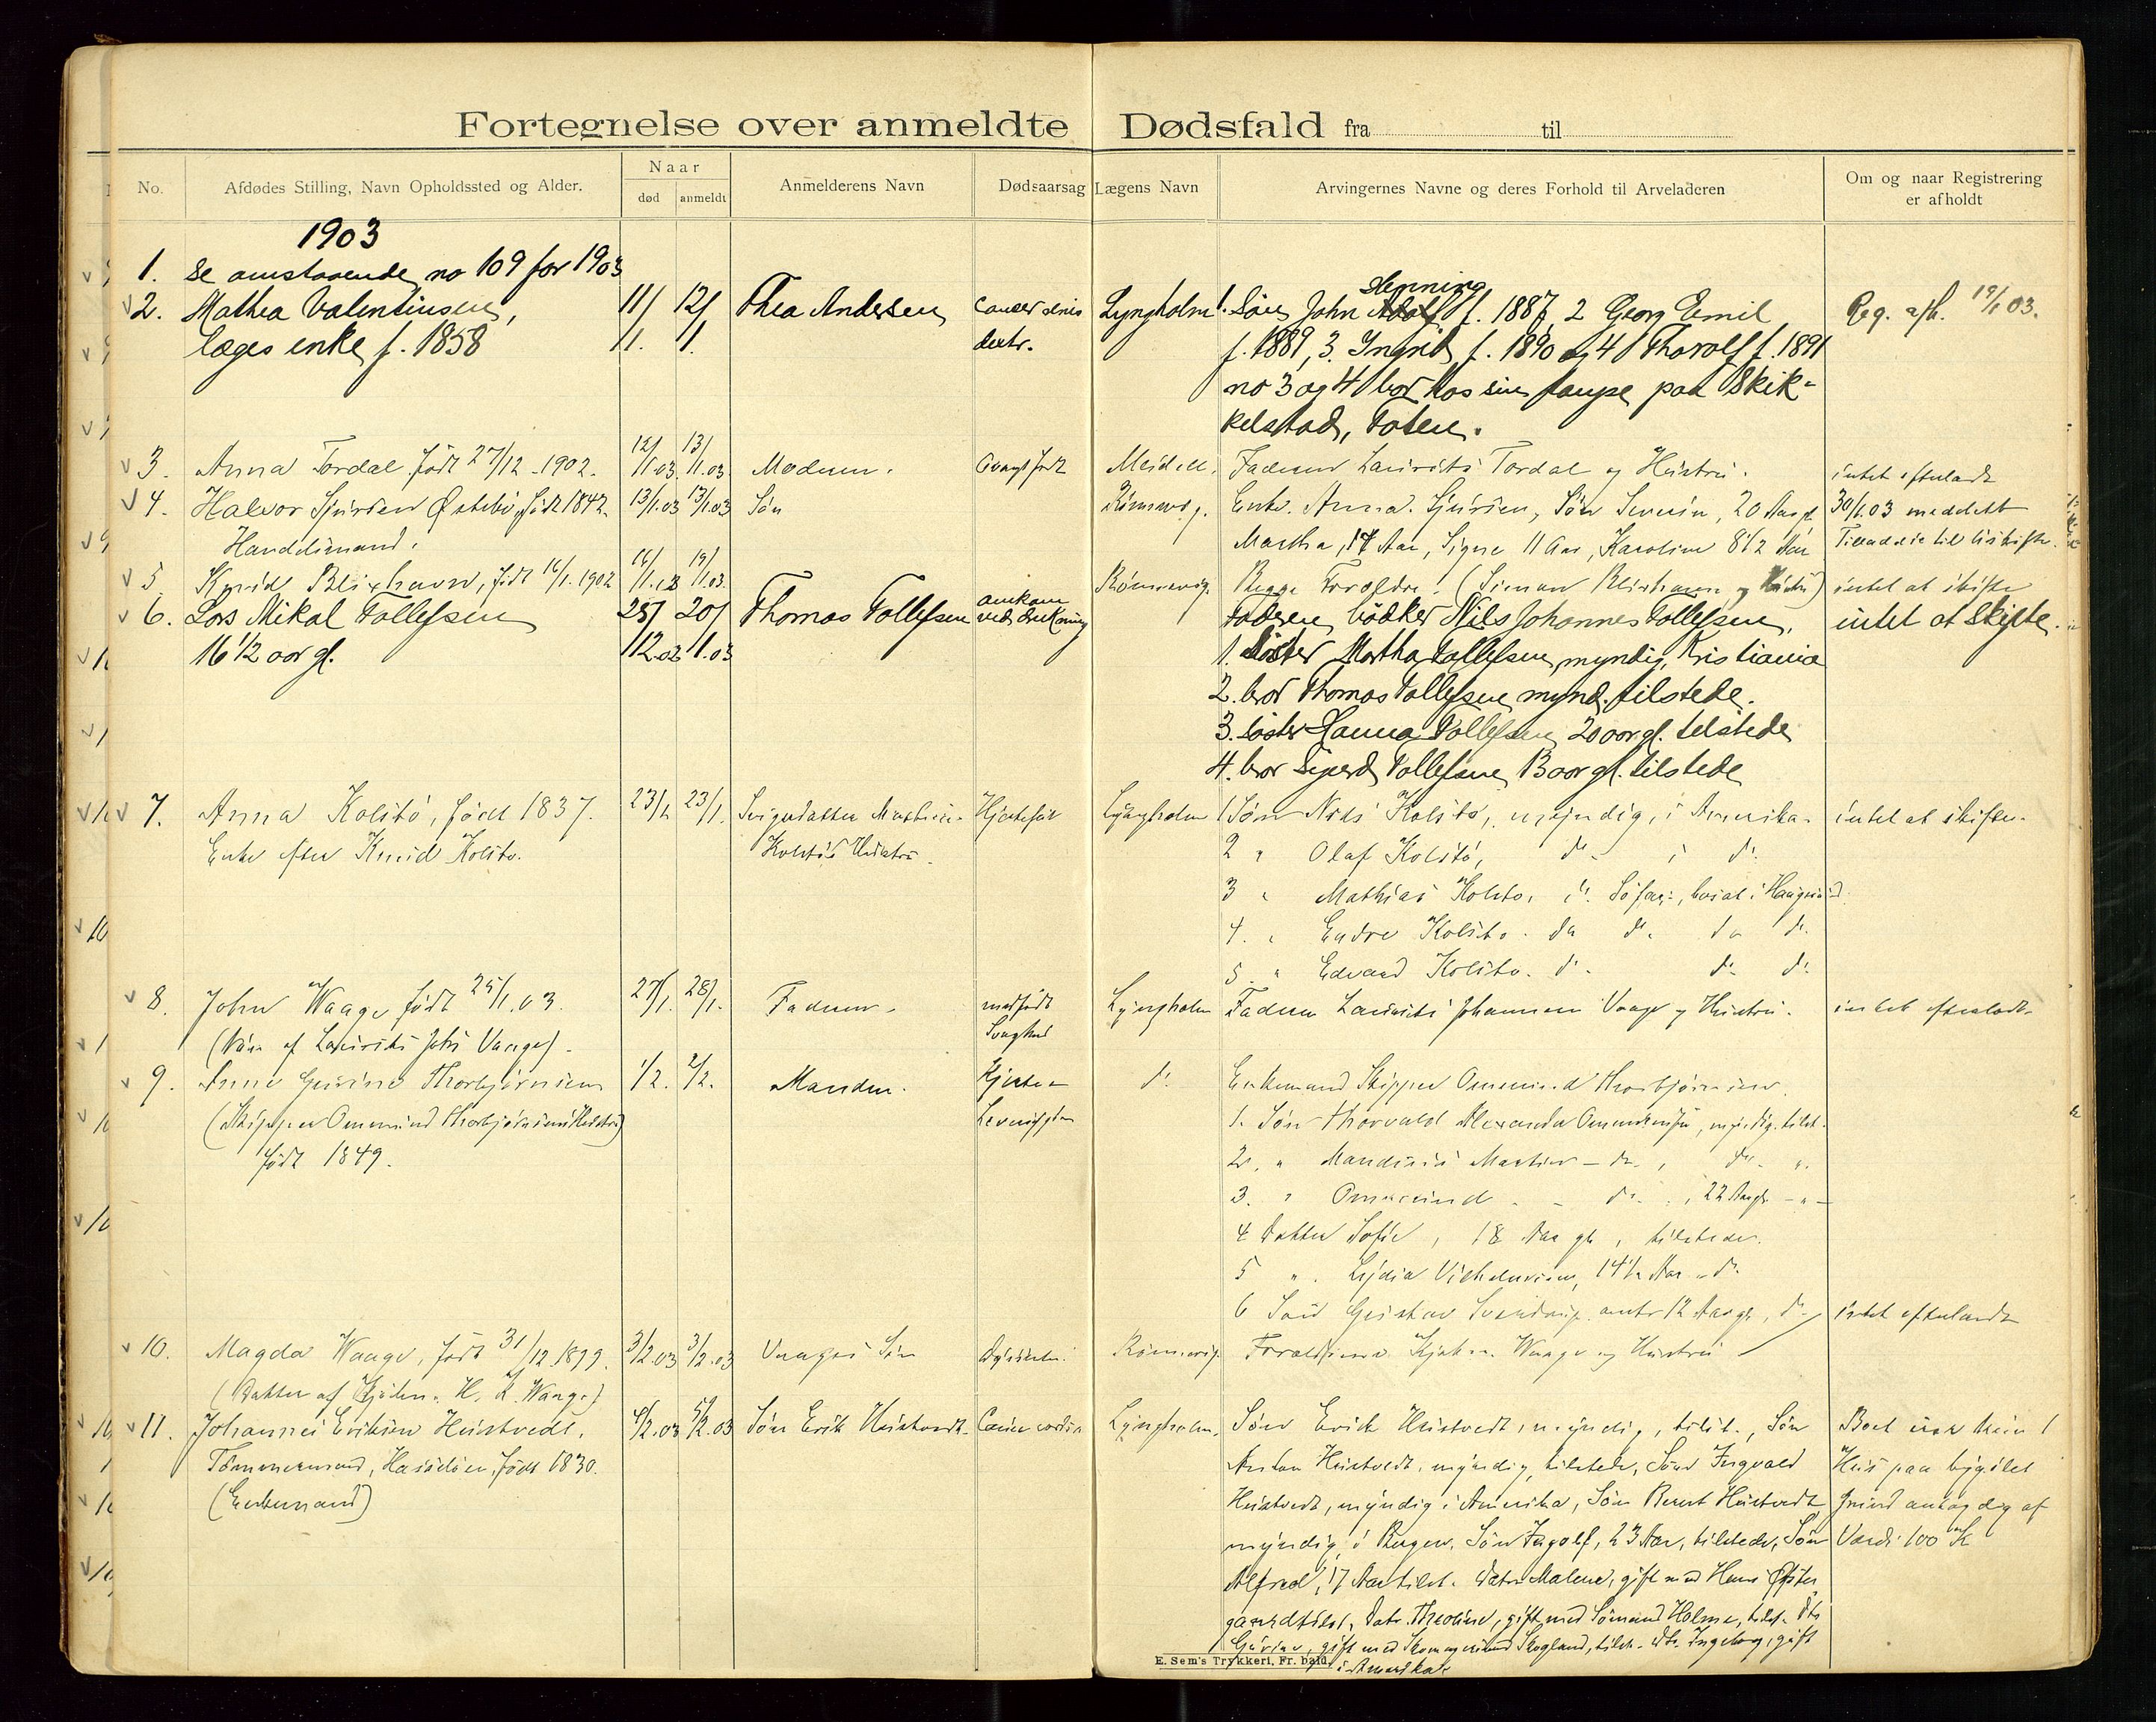 Fortegnelse over anmeldte Dødsfald fra til
No.
Afdødes Stilling, Navn Opholdssted og Alder.
Naar
død
anmeldt
Anmelderens Navn
Dødsaarsag
Lægens Navn
Arvingernes Navne og deres Forhold til Arveladeren
Om og naar Registrering
er afholdt
1903
1. Se omstaaende no 109 for 1903
2. Mathea Valentinsen, 11/ 12/ Thea Andersen cancer Lyngholm 1. Søn John Henning f. 1887, 2 Georg Emil Reg. afh. 03.
læges enke f. 1858 1. 1. dextr. f. 1889, 3. Ingrid f. 1890 og 4 Thorolf f. 1891
no 3 og 4 bor hos sin paa Skik-
kelstad, Toten.
3. Anna Tordal født 27/12-1902. 12/1.03 13/1.03 Moderen. Meidell. Faderen Laurits Tordal og Hustru. intet efterladt
4. Halvor Sjursen Østebø, født 1842. 13/1.03 13/1.03 Søn Rømcvig. Enke Anna Sjursen, Søn Severin, 20 Aar gl. 30/1.03 meddelt
Handelsmand. Martha, 14 Aar, Signe 11 Aar, Karoline 8 1/2 Aar Tilladelse til Uskifte.
5. Blixhavn, født 16/1.1902 Begge Forældre. (Simon Blixhavn og Hustru) intet at skifte
6. Lars Mikal Tollefsen 28/ 20/ Thomas Tollefsen omkom Faderen, bødker Nils Johannes Tollefsen, intet at skifte.
16 1/2 aar gl. 12.02 1.03 ved drukning 1. Søster Martha Tollefsen, myndig, Kristiania
2. bror Thomas Tollefsen mynd. tilstede.
3. søster Hanna Tollefsen 20 aar gl. tilstede
4. bror Sigurd Tollefsen 13 aar gl. tilstede
7. Anna Kolstø, født 1837. 23/1 23/1. Svigerdatter Lyngholm 1 Søn Nils Kolstø, myndig, i Amerika. intet at skifte.
Enke efter Knud Kolstø. Kolstøs Hustru. 2 " Olaf Kolstø, do i do.
3 " Mathias Kolstø, bosat i
4. " Endre Kolstø. do do do do.
5. " Edvard Kolstø. do. do. do.
8. John Waage født 25/1.03. 27/1. 28/1. Faderen. medfødt Lyngholm Faderen Laurits Johannesen Vaage og Hustru. intet efterladt.
(Søn af Laurits Johs Vaage). Svaghed
9. Anne Gurine Thorbjørnsen 1/2. 2/2. Manden. Hjerte- do. Enkemand Skipper Ommund Thorbjørnsen.
(Skipper Ommund Thorbjørnsens Hustru) 1. Søn Thorvald Alexander Ommundsen, myndig, tilst.
født 1849. 2. " Martin - do. do. ".
3. " Ommund - do. , 22 Aar gl. - " -
4 Datter Sofie, 18 Aar gl, tilstede.
5 " Lydia 14 1/2 Aar do.
6 Søn Gustav 12 Aar gl, do. intet efterladt
10. Magda Waage, født 31/12.1899. 3/2.03 3/2.03 Vaages Søn Forældrene Waage og Hustru
(Datter af H. K. Waage)
11. Johannes Eriksen Hustvedt, 4/2.03 5/2.03 Søn Erik Hustvedt. Lyngholm. Søn Erik Hustvedt, myndig, tilst., Søn Boet kun 1
Tømmermand, Hasseløen, født 1830. Anton Hustvedt, myndig, tilstede, Søn Ingvald Hus paa bygslet
(Enkemand) Hustvedt, myndig i Amerika, Søn Bernt Hustvedt Grund antagelig af
myndig i Bergen, Søn Ingolf, 23 Aar, tilstede, Søn Værdi 100 Kr
Alfred, 17 Aar tilst. Datr. Malene, gift med Hans Øster
gaard tilst, Datr. Theoline, gift med Sømand Holme, tilst. Dtr
Gurine, gift med Skomager Skogland, tilst. Dtr. Ingeborg, gift
i Amerika
E. Sem's Trykkeri, Fr. hald.